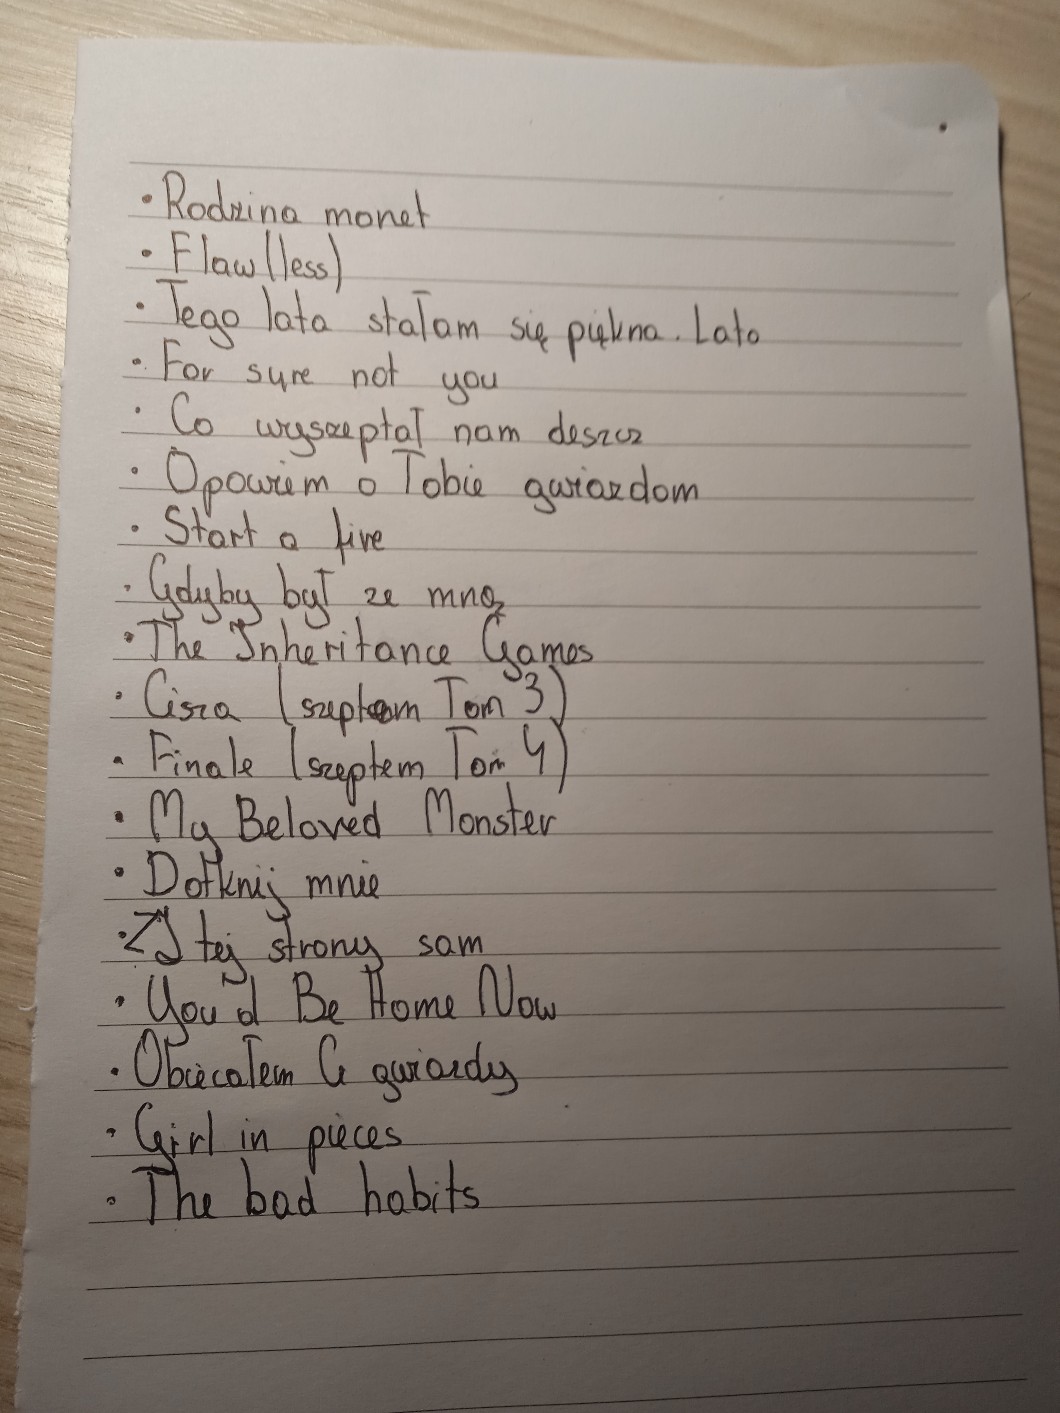 • Rodzina monet
• Flaw(less)
• Tego lata stałam się piękna. Lato
• For sure not you
• Co wyszeptał nam deszcz
• Opowiem o Tobie gwiazdom
• Start a fire
• Gdyby był ze mną
• The Inheritance Games
• Cisza (szeptem Tom 3)
• Finale (szeptem Tom 4)
• My Beloved Monster
• Dotknij mnie
• Z tej strony sam
• You'd Be Home Now
• Obiecałem Ci gwiazdy
• Girl in pieces
• The bad habits